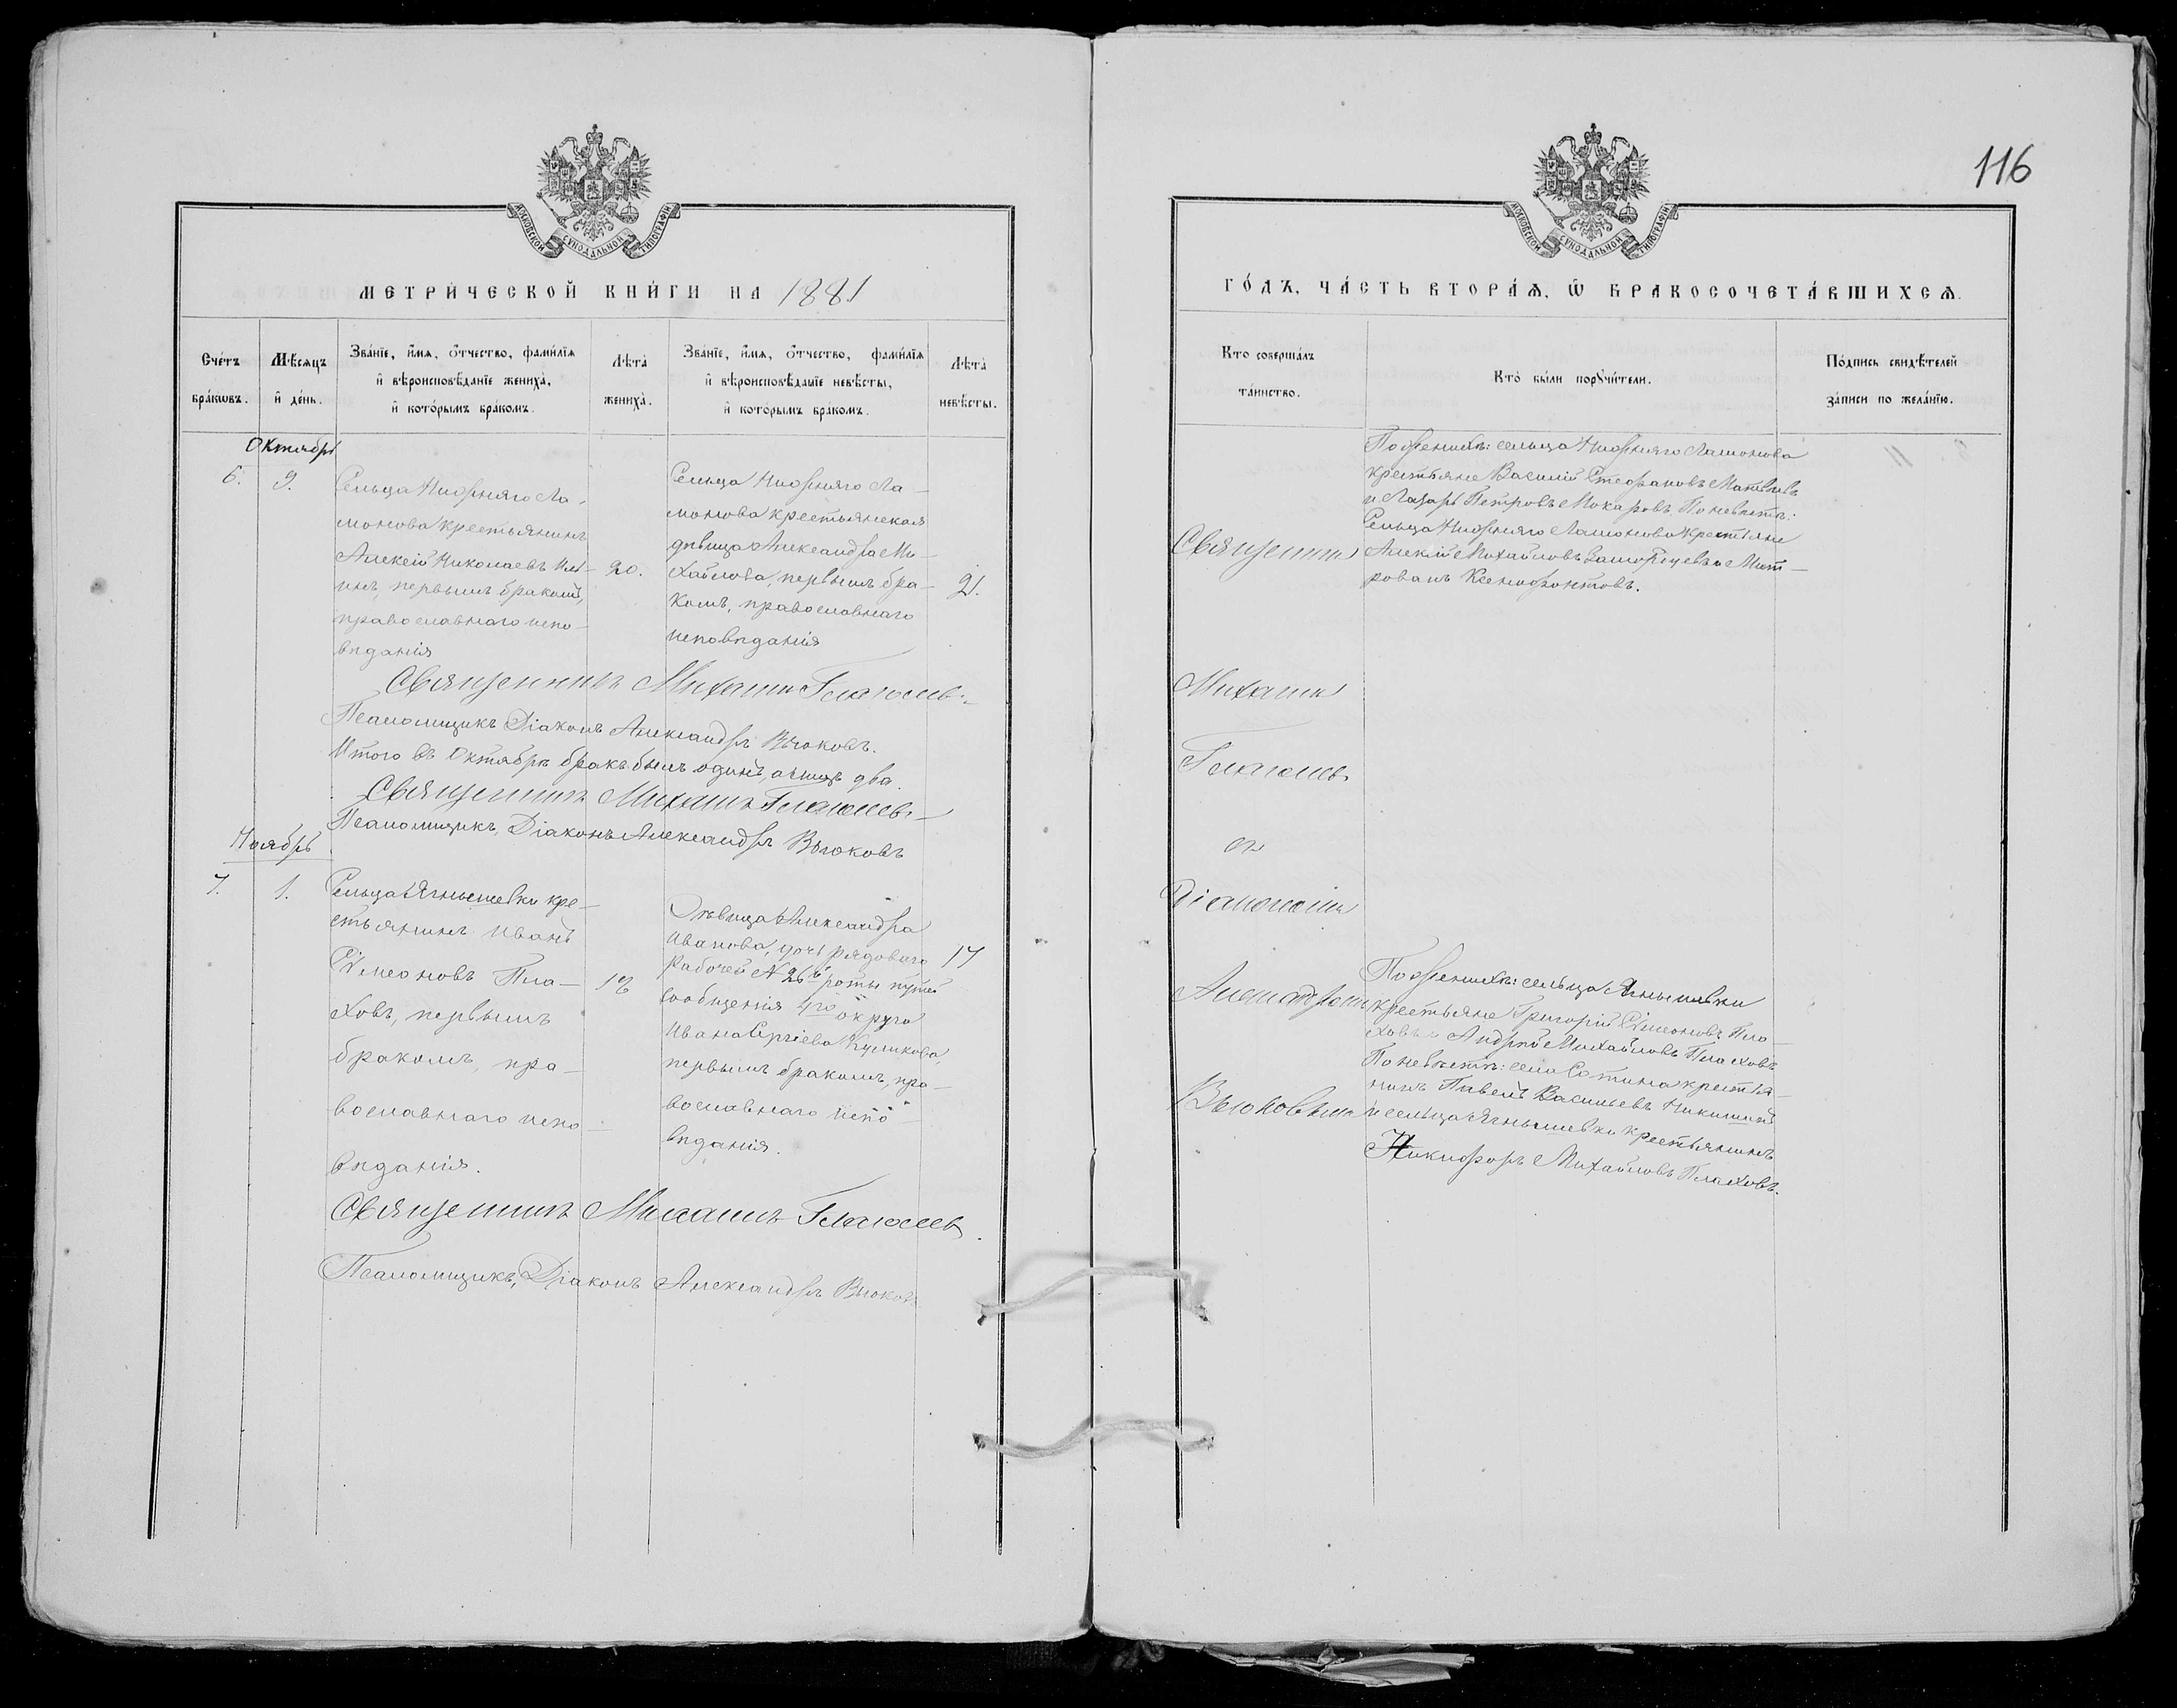 МОСКОВСКОЙ СѴНОДАЛЬНОЙ ТИПОГРАФІИ
МЕТРИ́ЧЕСКОЙ КНИ́ГИ НА 1881
Сче́тъ бра́кѡвъ.
Мѣ́сяцъ и҆ де́нь.
Зва́нїе, и҆́мя, о҆́тчество, фами́лїя
и҆ вѣроисповѣ́данїе жениха̀,
и҆ кото́рымъ бра́комъ.
Лѣ́та жениха̀.
Зва́нїе, и҆́мя, о҆́тчество, фами́лїя
и҆ вѣроисповѣ́данїе невѣ́сты,
и҆ кото́рымъ бра́комъ.
Лѣ́та невѣ́сты.
Октябрь
6.
9.
Сельца Нижняго Ла-
монова крестьянинъ
Алексій Николаевъ
инъ, первымъ бракомъ,
православнаго испо-
вѣданія
20.
Сельца Нижняго Ла-
монова крестьянская
дѣвица Александра Ми-
хайлова, первымъ бра-
комъ, православнаго
исповѣданія
21.
Священникъ Михаилъ Глаголевъ
Псаломщикъ Діаконъ Александръ Вьюковъ.
Итого въ Октябрѣ бракъ былъ одинъ, а лицъ два.
Священникъ Михаилъ Глаголевъ
Псаломщикъ, Діаконъ Александръ Вьюковъ
Ноябрь
7.
1.
Сельца Ягнышевки кре-
стьянинъ Иванъ
Сѵмеоновъ Пла-
ховъ, первымъ
бракомъ, пра-
вославнаго испо-
вѣданія.
18
Дѣвица Александра
Иванова, дочь рядоваго
рабочей № 26й роты путей
сообщенія 4го округа
Ивана Сергіева Куликова,
первымъ бракомъ, пра-
вославнаго испо-
вѣданія.
17
Священникъ Михаилъ Глаголевъ.
Псаломщикъ, Діаконъ Александръ Вьюковъ
116
МОСКОВСКОЙ СѴНОДАЛЬНОЙ ТИПОГРАФІИ
ГО́ДЪ, ЧА́СТЬ ВТОРА́Я, Ѡ҆ БРАКОСОЧЕТА́ВШИХСЯ.
Кто̀ соверша́лъ
та́инство.
Кто̀ бы́ли порꙋчи́тели.
По́дпись свидѣ́телей
за́писи по жела́нїю.
Священникъ
Михаилъ
Глаголевъ
съ
Діакономъ
Александромъ
Вьюковымъ
По женихѣ: сельца Нижняго Ламонова
крестьяне Василій Стефановъ
и Лазарь Петровъ Макаровъ. По невѣстѣ:
Сельца Нижняго Ламонова крестьяне
Алексій Михайловъ и Мит-
рованъ Ксенофонтовъ.
По женихѣ: сельца Ягнышевки
крестьяне Григорій Сѵмеоновъ Пла-
ховъ и Андрей Михайловъ Плаховъ
По невѣстѣ: села Сотина крестья-
нинъ Павелъ Васильевъ Никишинъ
и сельца Ягнышевки крестьянинъ
Никифоръ Михайловъ Плаховъ.